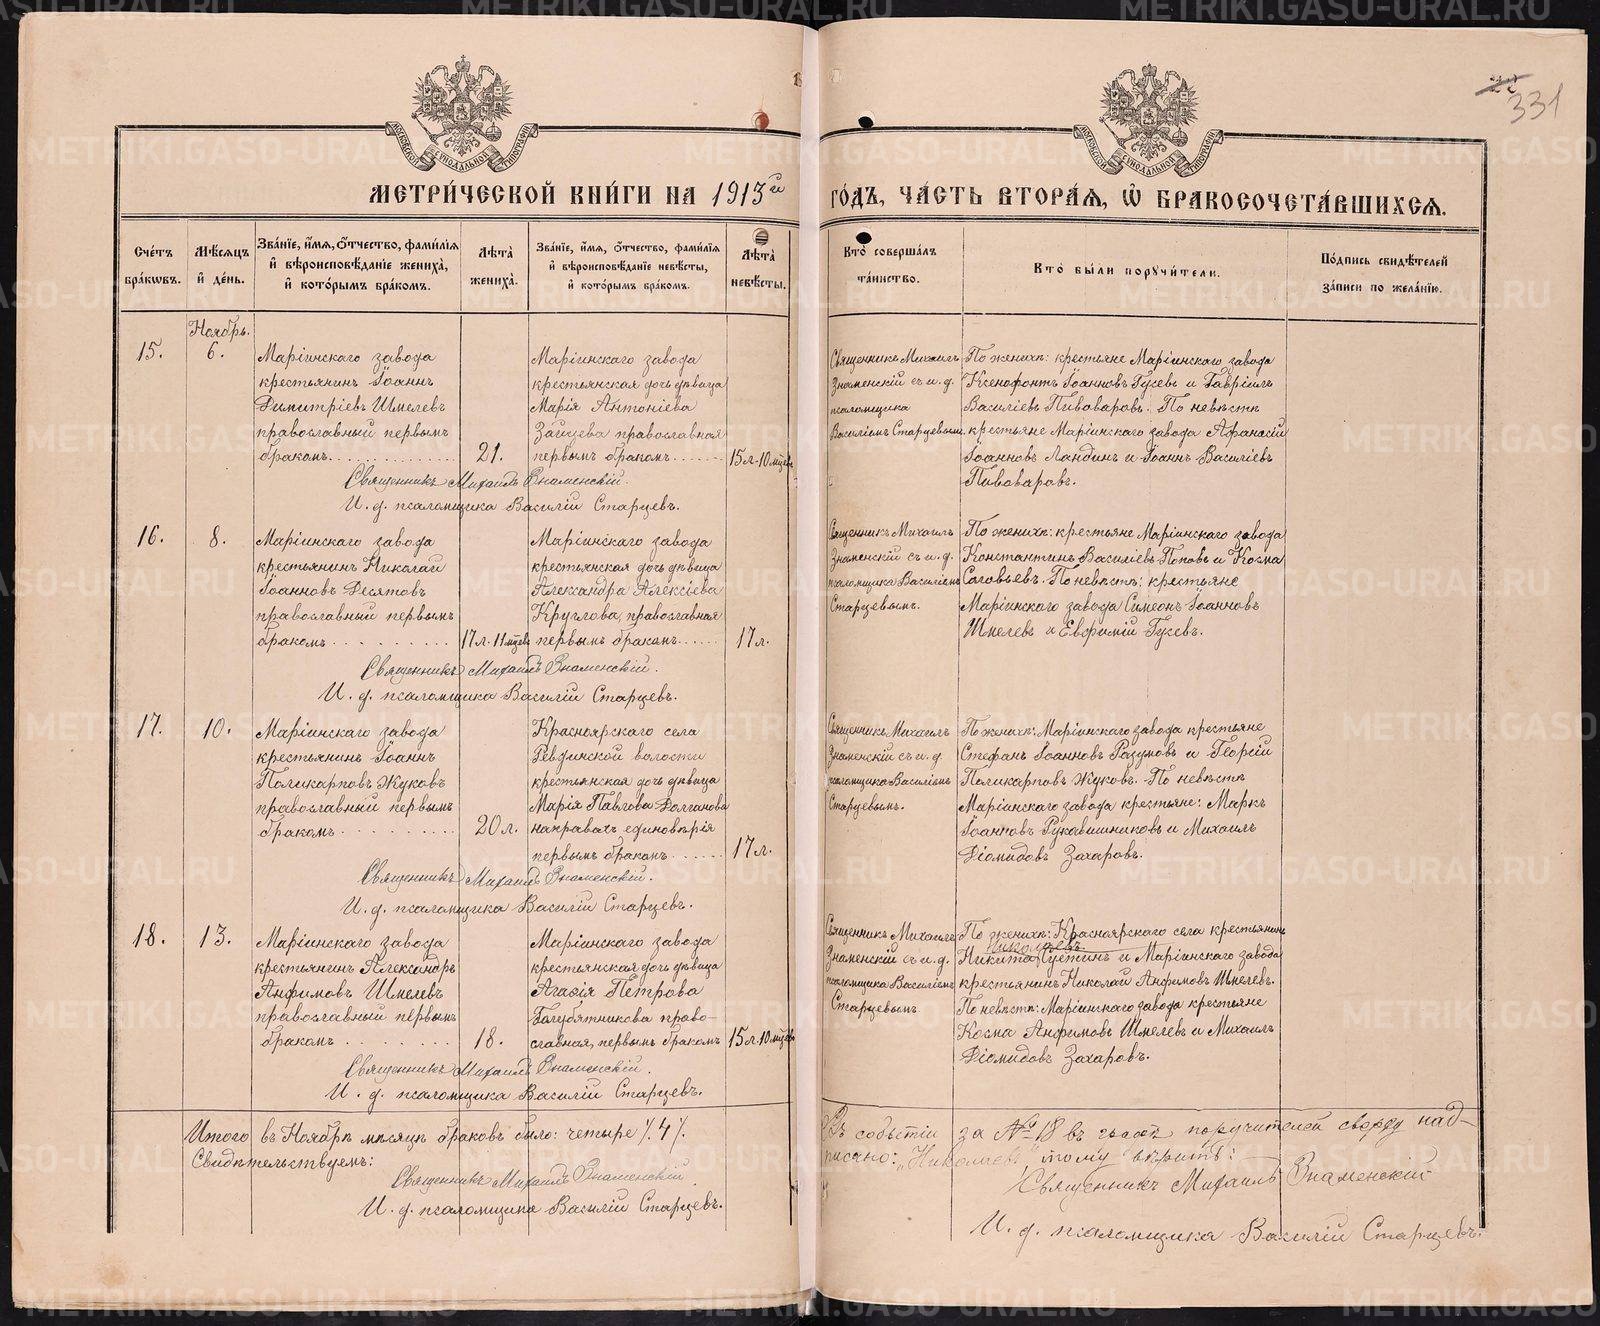 22
331
МОСКОВСКОЙ СѴНОДАЛЬНОЙ ТИПОГРАФІИ
МОСКОВСКОЙ СѴНОДАЛЬНОЙ ТИПОГРАФІИ
МЕТРИ́ЧЕСКОЙ КНИ́ГИ НА 1913й ГО́ДЪ, ЧА́СТЬ ВТОРА́Я, Ѽ БРАКОСОЧЕТА́ВШИХСЯ.
Сче́тъ бра́кωвъ.
Мѣ́сяцъ и҆ де́нь.
Зва́нїе, и҆́мя, ѻ҆́тчество, фами́лїя и҆ вѣроисповѣ́данїе жениха̀, и҆ кото́рымъ бра́комъ.
Лѣ́та жениха̀.
Зва́нїе, и҆́мя, ѻ҆́тчество, фами́лїя и҆ вѣроисповѣ́данїе невѣ́сты, и҆ кото́рымъ бра́комъ.
Лѣ́та невѣ́сты.
Кто̀ соверша́лъ та́инство.
Кто̀ бы́ли порꙋчи́тели.
По́дпись свидѣ́телей за́писи по жела́нїю.
Ноябрь.
15.
6.
Маріинскаго завода
крестьянинъ Іоаннъ
Димитріевъ Шмелевъ
православный первымъ
бракомъ.
21.
Маріинскаго завода
крестьянская дочь дѣвица
Марія Антоніева
Зайцева православная
первымъ бракомъ
15 л. 10 мцев
Священникъ Михаилъ
Знаменскій съ и. д.
псаломщика
Василіемъ Старцевымъ.
По женихѣ: крестьяне Маріинскаго завода
Ксенофонтъ Іоанновъ Гусевъ и Гавріилъ
Василіевъ Пивоваровъ. По невѣстѣ
крестьяне Маріинскаго завода Афанасій
Іоанновъ Ландинъ и Іоаннъ Василіевъ
Пивоваровъ.
Священникъ Михаилъ Знаменскій.
И. д. псаломщика Василій Старцевъ.
16.
8.
Маріинскаго завода
крестьянинъ Николай
Іоанновъ Десятовъ
православный первымъ
бракомъ
17 л. 11 мцев
Маріинскаго завода
крестьянская дочь дѣвица
Александра Алексіева
Круглова, православная
первымъ бракомъ
17 л.
Священникъ Михаилъ
Знаменскій съ и. д.
псаломщика Василіемъ
Старцевымъ.
По женихѣ: крестьяне Маріинскаго завода
Константинъ Василіевъ Поповъ и Косма
Соловьевъ. По невѣстѣ: крестьяне
Маріинскаго завода Симеонъ Іоанновъ
Шмелевъ и Евфимій Гусевъ.
Священникъ Михаилъ Знаменскій.
И. д. псаломщика Василій Старцевъ.
17.
10.
Маріинскаго завода
крестьянинъ Іоаннъ
Поликарповъ Жуковъ
православный первымъ
бракомъ
20 л.
Красноярскаго села
Ревдинской волости
крестьянская дочь дѣвица
Марія Павлова Долганова
на правахъ единовѣрія
первымъ бракомъ
17 л.
Священникъ Михаилъ
Знаменскій съ и. д.
псаломщика Василіемъ
Старцевымъ.
По женихѣ: Маріинскаго завода крестьяне
Стефанъ Іоанновъ Разумовъ и Георгій
Поликарповъ Жуковъ. По невѣстѣ
Маріинскаго завода крестьяне: Маркъ
Іоанновъ Рукавишниковъ и Михаилъ
Діомидовъ Захаровъ.
Священникъ Михаилъ Знаменскій.
И. д. псаломщика Василій Старцевъ.
18.
13.
Маріинскаго завода
крестьянинъ Александръ
Анфимовъ Шмелевъ
православный первымъ
бракомъ
18.
Маріинскаго завода
крестьянская дочь дѣвица
Агафія Петрова
Голубятникова право-
славная, первымъ бракомъ
15 л. 10 мцев
Священникъ Михаилъ
Знаменскій съ и. д.
псаломщика Василіемъ
Старцевымъ
По женихѣ: Красноярскаго села крестьянинъ
Николаевъ
Никита и Маріинскаго завода
крестьянинъ Николай Анфимовъ Шмелевъ.
По невѣстѣ: Маріинскаго завода крестьяне
Косма Анфимовъ Шмелевъ и Михаилъ
Діомидовъ Захаровъ.
Священникъ Михаилъ Знаменскій.
И. д. псаломщика Василій Старцевъ.
Итого въ Ноябрѣ мѣсяцѣ браковъ было: четыре /.4/.
Свидѣтельствуемъ:
Священникъ Михаилъ Знаменскій
И. д. псаломщика Василій Старцевъ.
Въ событіи за № 18 въ графѣ поручителей сверху над-
писано: „Николаевъ" тому вѣрить:
Священникъ Михаилъ Знаменскій
И. д. псаломщика Василій Старцевъ.
METRIKI.GASO-URAL.RU